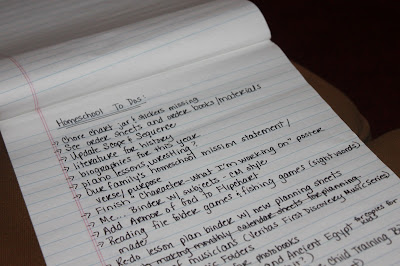 Homeschool To Dos:
-> Chore chart jar & stickers missing
-> See order sheets and order books/materials
-> Update Scope & Sequence
-> literature for history
-> biographies for this year
-> piano lessons, wrestling?
-> Our family's homeschool mission statement/
verse/purpose
-> Finish "character what I'm working on" poster
-> Me... Binder w/ subjects - CM style
-> Add Armor of God to Flipchart
-> Reading file folder games & fishing games (sight words)
made
Redo lesson plan binder w/ new planning sheets
making monthly calendar sheets for planning
of musicians (Veritas First Discovery series)
folders
photobooks
and Ancient Egypt
Child Training